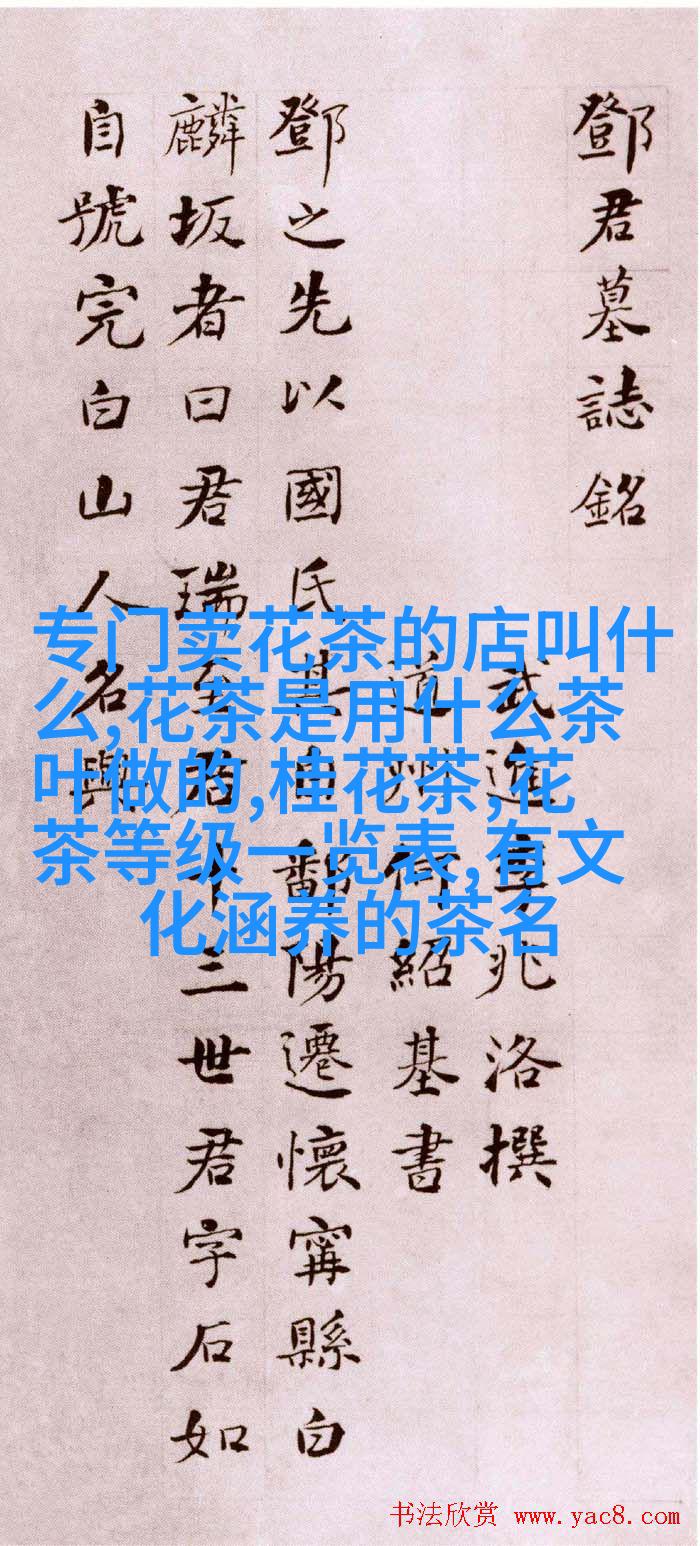 鄧君墓誌銘
武進李兆洛撰
道州何紹基書
鄧之先以國氏其由鄱陽遷懷甯縣白
麟坂者曰君瑞至君十三世君字石如
自號完白山人名與
专门卖花茶的店叫什
么,花茶是用什么茶
叶做的,桂花茶,花
茶等级一览表,有文
化涵养的茶名
书法欣赏 www.yac8.com